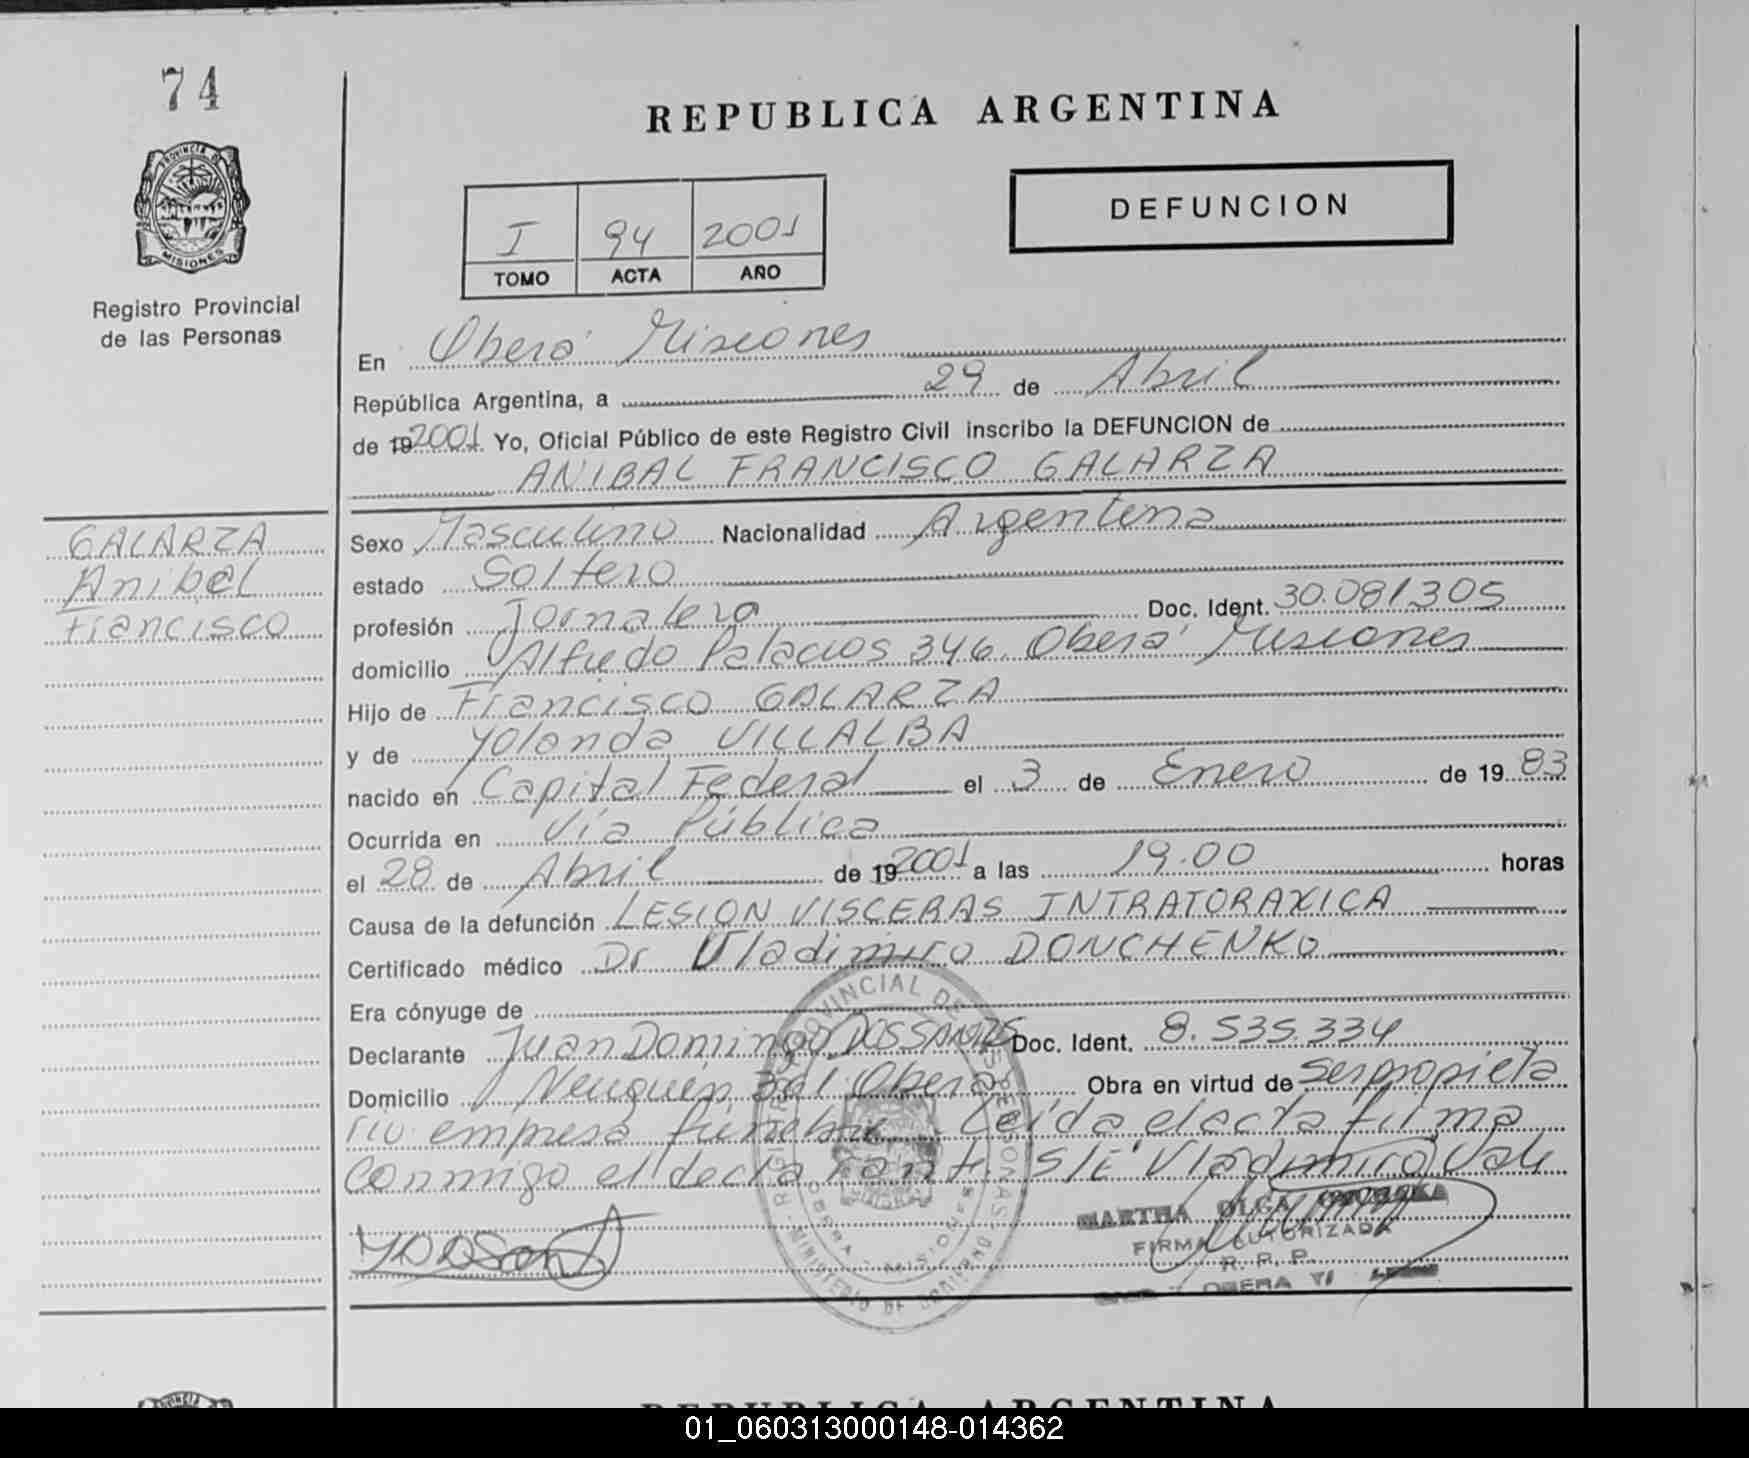 74
REPUBLICA ARGENTINA
PROVINCIA DE
MISIONES
DEFUNCION
I 94 2001
TOMO ACTA AÑO
Registro Provincial
de las Personas
En Oberá Misiones
República Argentina, a 29 de Abril
de 19 2001 Yo, Oficial Público de este Registro Civil inscribo la DEFUNCION de
ANIBAL FRANCISCO GALARZA
GALARZA
Anibal
Francisco
Sexo Masculino Nacionalidad Argentina
estado Soltero
profesión Jornalero Doc. Ident. 30.081305
domicilio Alfredo Palacios 346. Oberá Misiones
Hijo de Francisco GALARZA
y de Yolanda VILLALBA
nacido en Capital Federal el 3 de Enero de 19 83
Ocurrida en Vía Pública
el 28 de Abril de 19 2001 a las 19.00 horas
Causa de la defunción LESION VISCERAS INTRATORAXICA
Certificado médico Dr Vladimiro DONCHENKO
Era cónyuge de
Declarante Juan Domingo DOS SANTOS Doc. Ident. 8.535.334
Domicilio Neuquén 321 Oberá Obra en virtud de ser propieta
rio empresa fúnebre Leída el acta firma
conmigo el declarante S/E Vladimiro Vale
MARTHA OLGA
FIRMA AUTORIZADA
R. R. P.
OBERA
REPUBLICA ARGENTINA
01_060313000148-014362